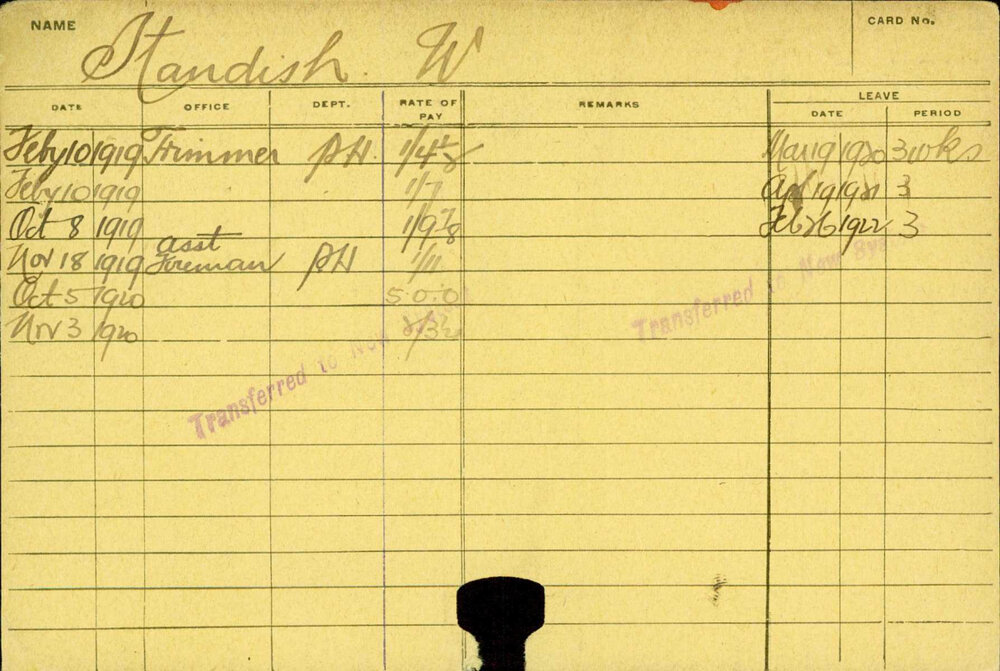 NAME Standish W CARD No.
DATE OFFICE DEPT. RATE OF PAY REMARKS LEAVE DATE PERIOD
Feby 10 1919 Trimmer PH. Mar 9 1920 3 wks
Feby 10 1919 1/7 Apl 19 1921 3
Oct 8 1919 1/9 7/8 Feb 26 1922 3
asst
Nov 18 1919 Foreman PH 1/11
Oct 5 1920 5.0.0
Nov 3 1920
Transferred to New
Transferred to New Sys